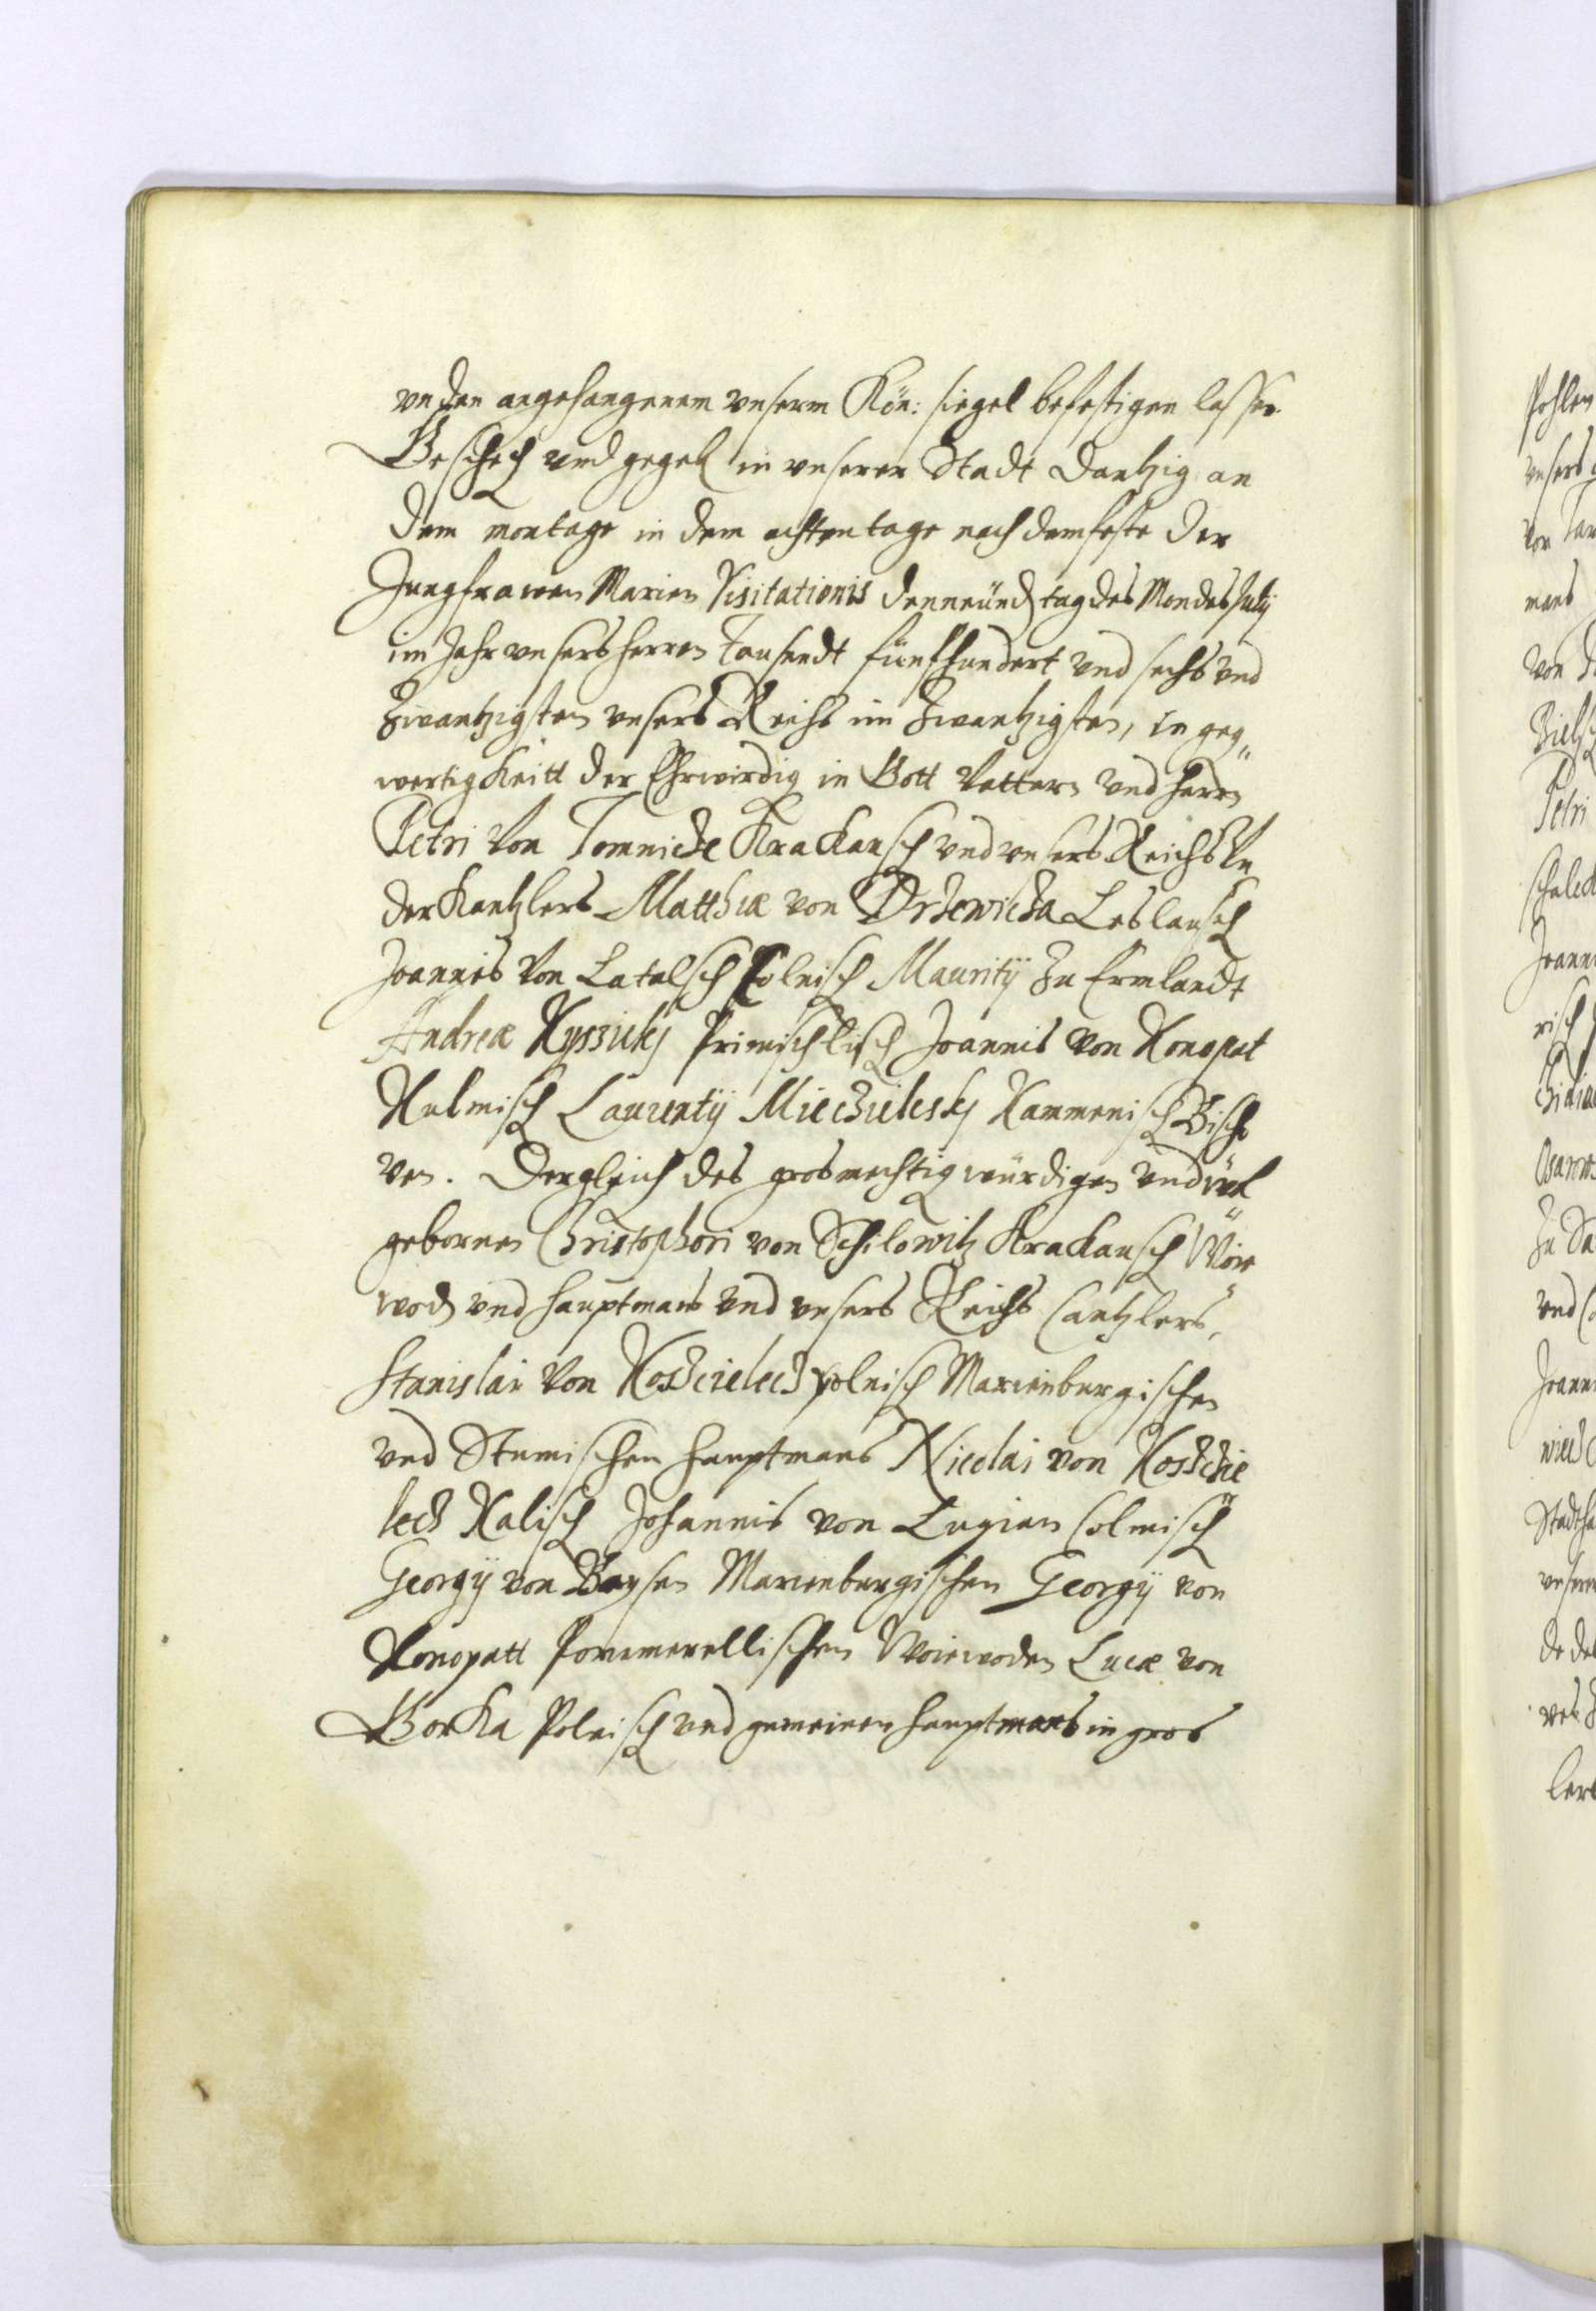 vnden angehangenem vnserm Kön: siegel befestigen lassen.
Geschech und gegeb in vnserer Stadt Dantzig an
dem montage in dem achtentage nach dem feste der
Jungfrawen Marien Visitationis den neündtag des Mondes July
im Jahr vnsers herren Tausendt fünfhundert und sechs vnd
Zwantzigsten vnsers Reichs im Zwantzigsten, in geg„
wertigkeitt der Ehrwirdig in Gott Vettern vnd herrn
Petri von Tomnicke Krackausch und vnsers Reichs Vn
derkantzlers Matthiæ von Drzewicza Leslausch
Joannis von Latalsch Polnisch Mauritij Zu Ermlandt
Andreæ Kyszicky Primischlisch Joannis von Konopat
Kulmisch Laurentij Miedzielesky Kammenisch Bischo
ven. Dergleich des grosmechtig würdigen und wol
gebornen Christophori von Schilowitz Krackausch Woie
wod und hauptmans und vnsers Reichs Cantzlers,
Stanislai von Koszcielecz polnisch Marienburgischen
vnd Stumischen hauptmans Nicolai von Koszczie
lecz Kalisch Johannis von Lugian Colmisch
Georgij von Baysen Marienburgischen Georgij von
Konopatt Pommerellischen Woiewoden Lucæ von
Gorka Polnisch und gemeinen hauptmans in gros
Pohlen
vnsers
von
mans
von
Petri
schalck
risch
und
Joann
vnsern
de des